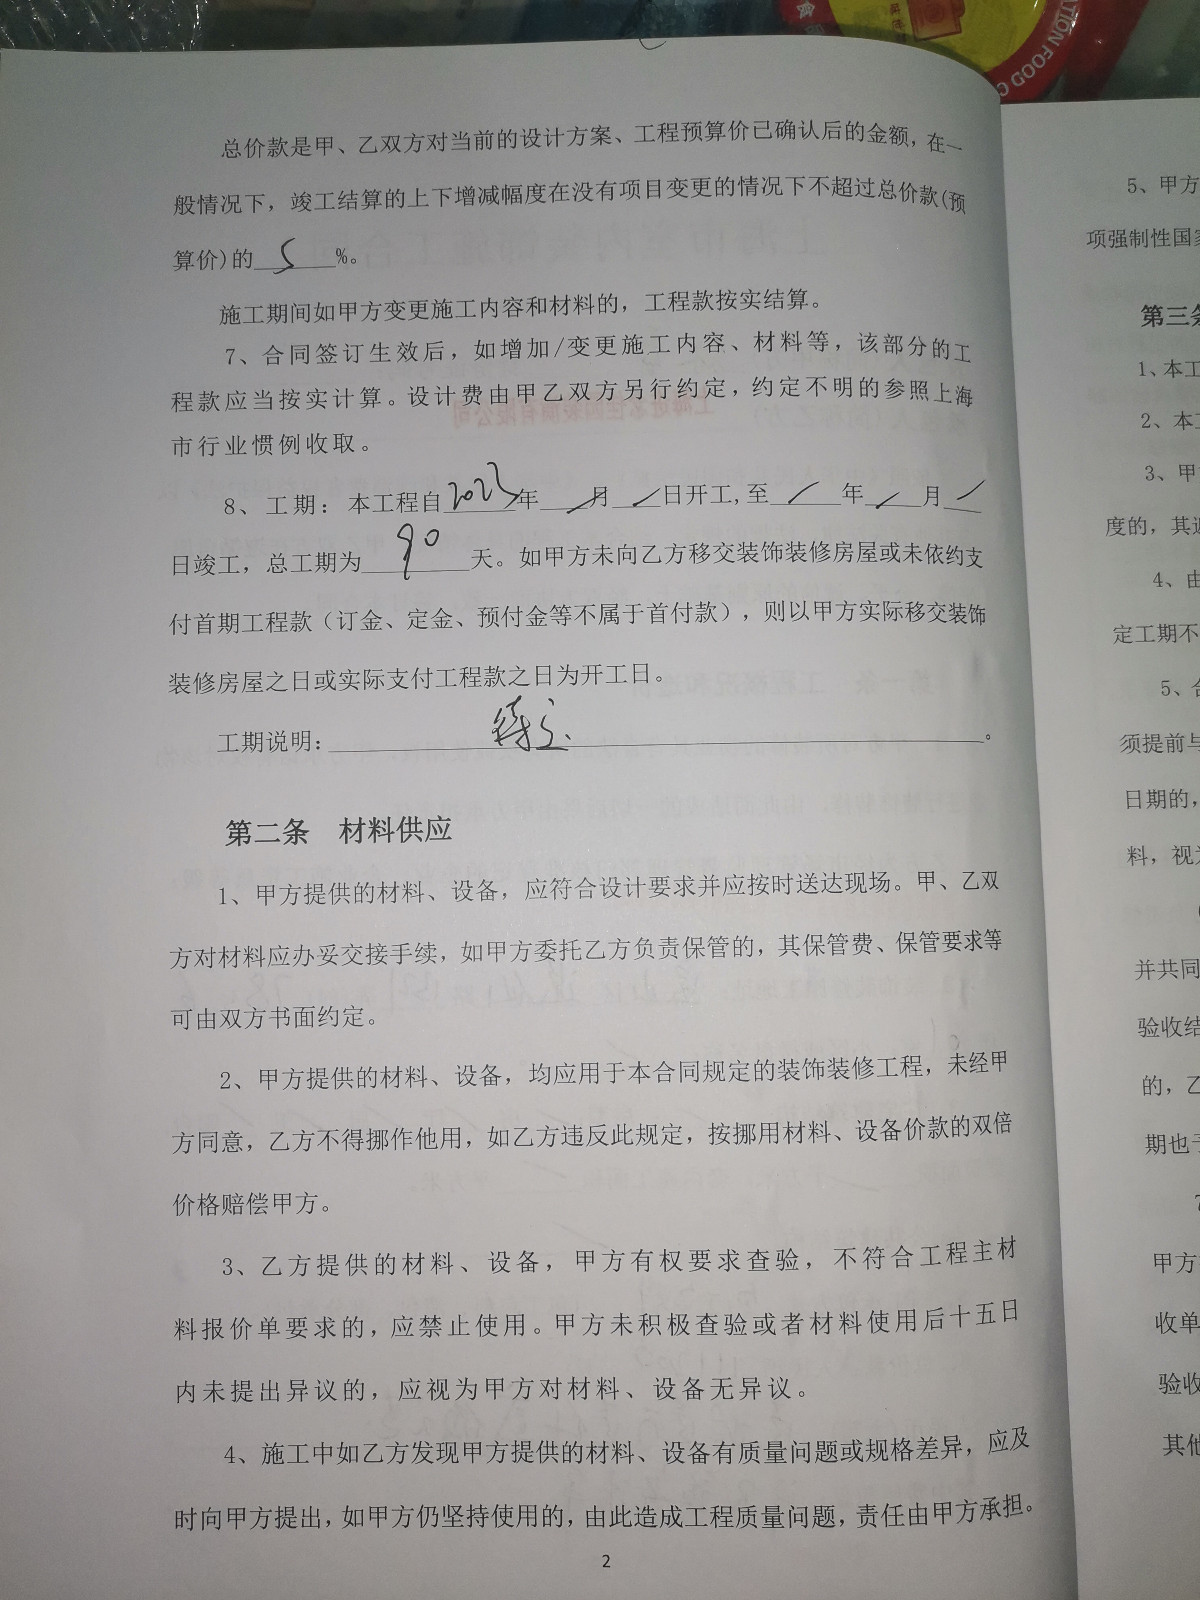 TION FOOD C
总价款是甲、乙双方对当前的设计方案、工程预算价已确认后的金额，在一
般情况下，竣工结算的上下增减幅度在没有项目变更的情况下不超过总价款(预
算价)的 5 %。
施工期间如甲方变更施工内容和材料的，工程款按实结算。
7、合同签订生效后，如增加/变更施工内容、材料等，该部分的工
程款应当按实计算。设计费由甲乙双方另行约定，约定不明的参照上海
市行业惯例收取。
8、工期：本工程自 2023 年 / 月 / 日开工,至 / 年 / 月 /
日竣工，总工期为 90 天。如甲方未向乙方移交装饰装修房屋或未依约支
付首期工程款（订金、定金、预付金等不属于首付款），则以甲方实际移交装饰
装修房屋之日或实际支付工程款之日为开工日。
工期说明: 待定 。
第二条 材料供应
1、甲方提供的材料、设备，应符合设计要求并应按时送达现场。甲、乙双
方对材料应办妥交接手续，如甲方委托乙方负责保管的，其保管费、保管要求等
可由双方书面约定。
2、甲方提供的材料、设备，均应用于本合同规定的装饰装修工程，未经甲
方同意，乙方不得挪作他用，如乙方违反此规定，按挪用材料、设备价款的双倍
价格赔偿甲方。
3、乙方提供的材料、设备，甲方有权要求查验，不符合工程主材
料报价单要求的，应禁止使用。甲方未积极查验或者材料使用后十五日
内未提出异议的，应视为甲方对材料、设备无异议。
4、施工中如乙方发现甲方提供的材料、设备有质量问题或规格差异，应及
时向甲方提出，如甲方仍坚持使用的，由此造成工程质量问题，责任由甲方承担。
2
5、甲方
项强制性国
第三条
1、本工
2、本
3、甲
度的，其
4、由
定工期不
5、合
须提前与
日期的，
料，视
并共同
验收结
的，乙
期也
7
甲方
收单
验收
其他